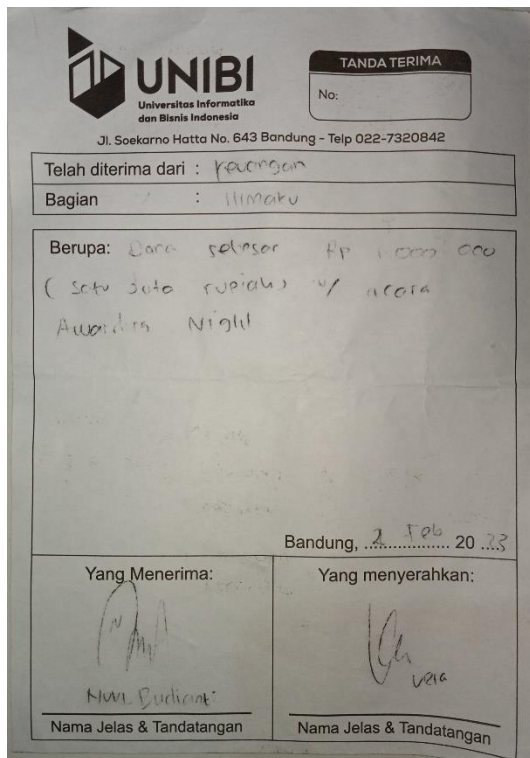 UNIBI
Universitas Informatika
dan Bisnis Indonesia
TANDA TERIMA
No:
Jl. Soekarno Hatta No. 643 Bandung - Telp 022-7320842
Telah diterima dari : Keuangan
Bagian : Himaku
Berupa: Dana sebesar Rp 1.000.000
(satu juta rupiah) u/ acara
Awarding Night
Bandung, 2 Feb 2023
Yang Menerima:
Yang menyerahkan:
Vera
Nama Jelas & Tandatangan
Nama Jelas & Tandatangan